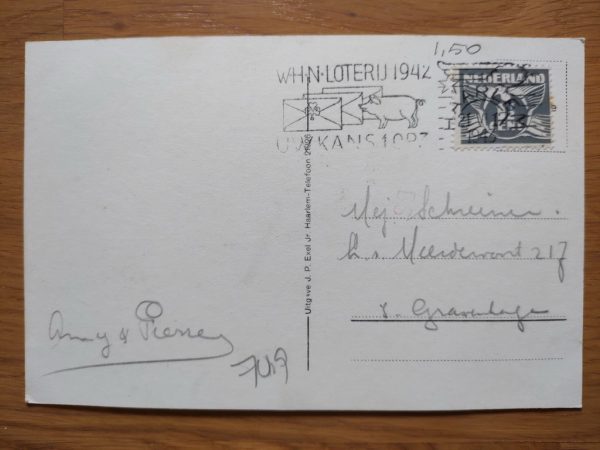 1,50
W.H.N. LOTERIJ 1942
KANS 1 OP
NEDERLAND
Uitgave J. P. Exel Jr. Haarlem-Telefoon
Mej. Schreiner.
217
s. Gravenhage
Amy & Pierre